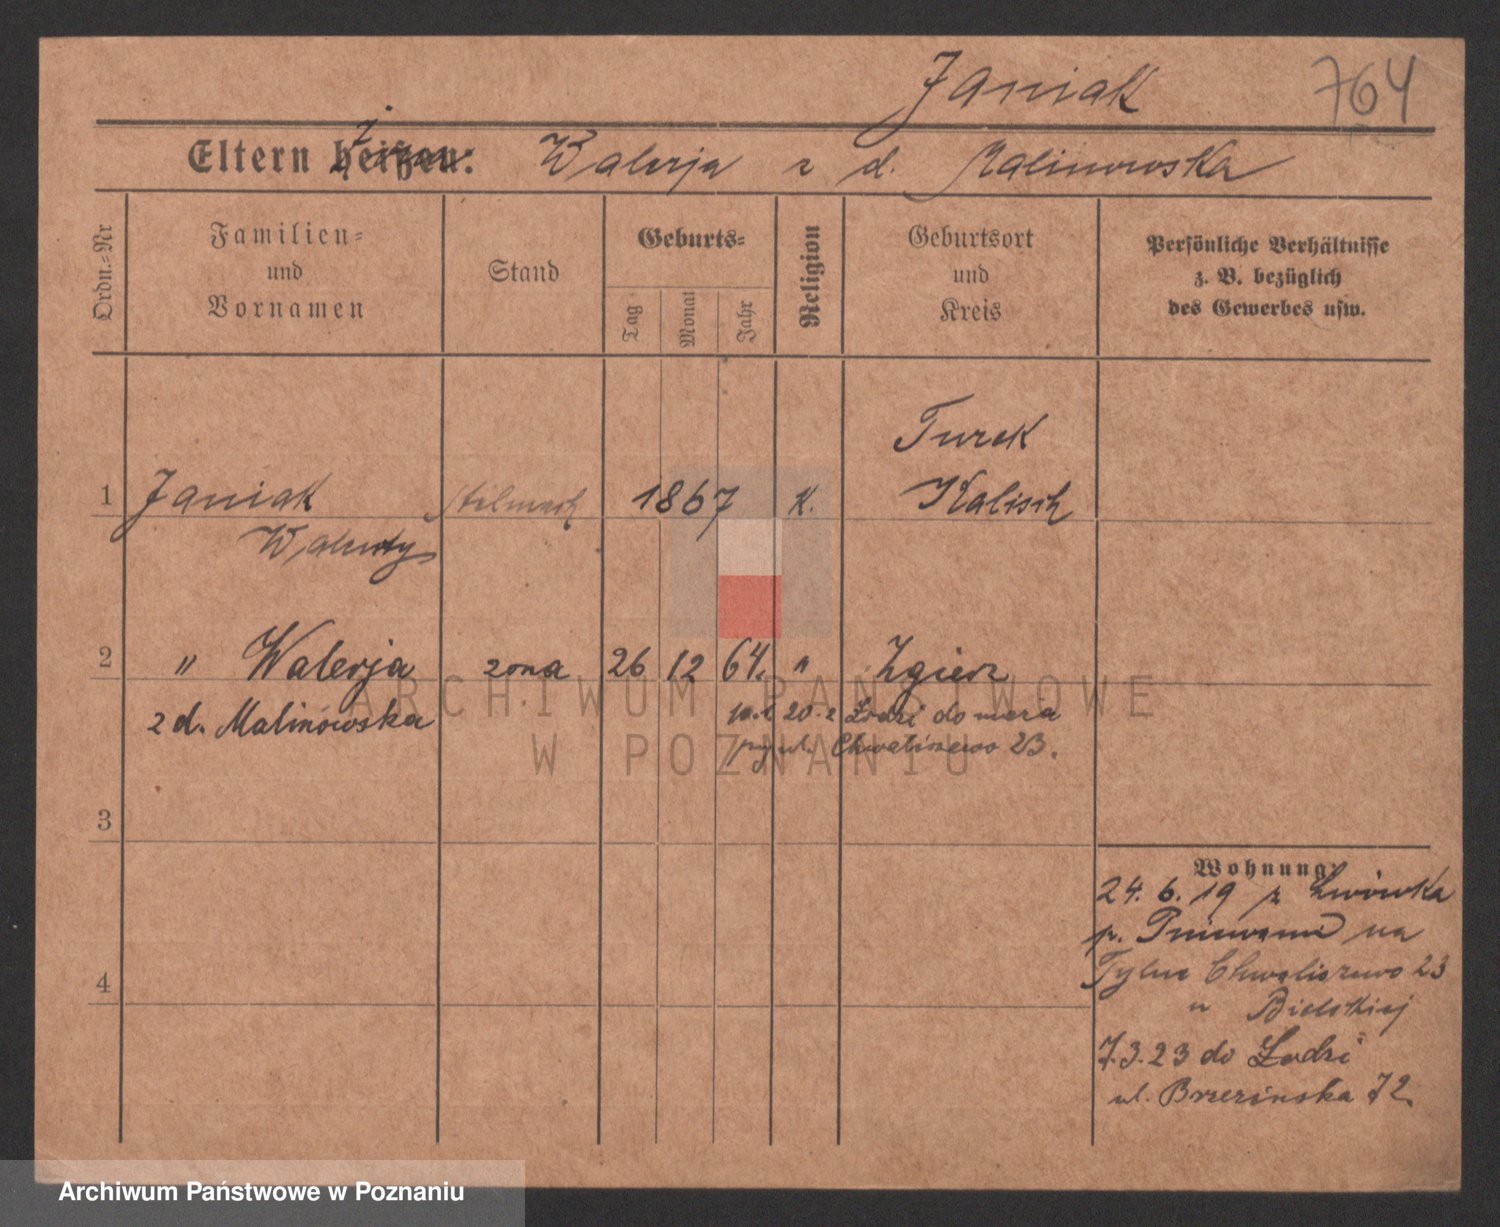 Janiak 764
Eltern heißen: Walerja z d. Malinowska
Ordn.-Nr
Familien-
und
Vornamen
Stand
Geburts-
Tag
Monat
Jahr
Religion
Geburtsort
und
Kreis
Persönliche Verhältnisse
z. B. bezüglich
des Gewerbes usw.
Turek
1 Janiak 1867 K. Kalisch
Walenty
2 " Walerja zona 26 12 64. " Zgierz
z d. Malinowska 20. 2 Łodzi do męża
przy ul. Chwaliszewo 23.
3
Wohnung:
24. 6. 19 z Lwówka
p. Pniewami na
Tylne Chwaliszewo 23
u Bielskiej
4
7.3.23 do Łodzi
ul. Brzezinska 72.
ARCHIWUM PAŃSTWOWE
W POZNANIU
Archiwum Państwowe w Poznaniu